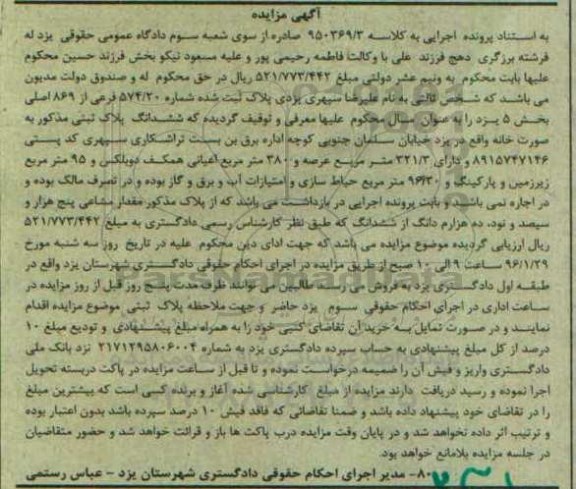 آگهی مزایده
به استناد پرونده اجرایی به کلاسه ۹۵۰۳۶۹/۳ صادره از سوی شعبه سوم دادگاه عمومی حقوقی یزد له
فرشته برزگری دهج فرزند علی با وکالت فاطمه رحیمی پور و علیه مسعود نیکو بخش فرزند حسین محکوم
علیها بابت محکوم به ونیم عشر دولتی مبلغ ۵۲۱/۷۷۳/۴۴۲ ریال در حق محکوم له و صندوق دولت مدیون
می باشد که شخص ثالثی به نام علیرضا سپهری یزدی پلاک ثبت شده شماره ۵۷۴/۲۰ فرعی از ۸۶۹ اصلی
بخش ۵ یزد را به عنوان مال محکوم علیها معرفی و توقیف گردیده که ششدانگ پلاک ثبتی مذکور به
صورت خانه واقع در یزد خیابان سلمان جنوبی کوچه اداره برق بن بست تراشکاری سپهری کد پستی
۸۹۱۵۷۴۷۱۴۶ و دارای ۳۲۱/۳ متر مربع عرصه و ۳۸۰ متر مربع اعیانی همکف دوبلکس و ۹۵ متر مربع
زیرزمین و پارکینگ و ۹۶/۳۰ متر مربع حیاط سازی و امتیازات آب و برق و گاز بوده و در تصرف مالک بوده و
در اجاره نمی باشد و بابت پرونده اجرایی در بازداشت می باشد که از پلاک مذکور مقدار مشاعی پنج هزار و
سیصد و نود، ده هزارم دانگ از ششدانگ که طبق نظر کارشناس رسمی دادگستری به مبلغ ۵۲۱/۷۷۳/۴۴۲
ریال ارزیابی گردیده موضوع مزایده می باشد که جهت ادای دین محکوم علیه در تاریخ روز سه شنبه مورخ
۹۶/۱/۲۹ ساعت ۹ الی ۱۰ صبح از طریق مزایده در اجرای احکام حقوقی دادگستری شهرستان یزد واقع در
طبقه اول دادگستری یزد به فروش می رسد طالبین می توانند ظرف مدت پنج روز قبل از روز مزایده در
ساعت اداری در اجرای احکام حقوقی سوم یزد حاضر و جهت ملاحظه پلاک ثبتی موضوع مزایده اقدام
نمایند و در صورت تمایل به خرید آن تقاضای کتبی خود را به همراه مبلغ پیشنهادی و تودیع مبلغ ۱۰
درصد از کل مبلغ پیشنهادی به حساب سپرده دادگستری یزد به شماره ۲۱۷۱۲۹۵۸۰۶۰۰۴ نزد بانک ملی
دادگستری واریز و فیش آن را ضمیمه درخواست نموده و تا قبل از ساعت مزایده در پاکت دربسته تحویل
اجرا نموده و رسید دریافت دارند مزایده از مبلغ کارشناسی شده آغاز و برنده کسی است که بیشترین مبلغ
را در تقاضای خود پیشنهاد داده باشد و ضمنا تقاضائی که فاقد فیش ۱۰ درصد سپرده باشد بدون اعتبار بوده
و ترتیب اثر داده نخواهد شد و در پایان وقت مزایده درب پاکت ها باز و قرائت خواهد شد و حضور متقاضیان
در جلسه مزایده بلامانع خواهد بود.
۸۰- مدیر اجرای احکام حقوقی دادگستری شهرستان یزد - عباس رستمی